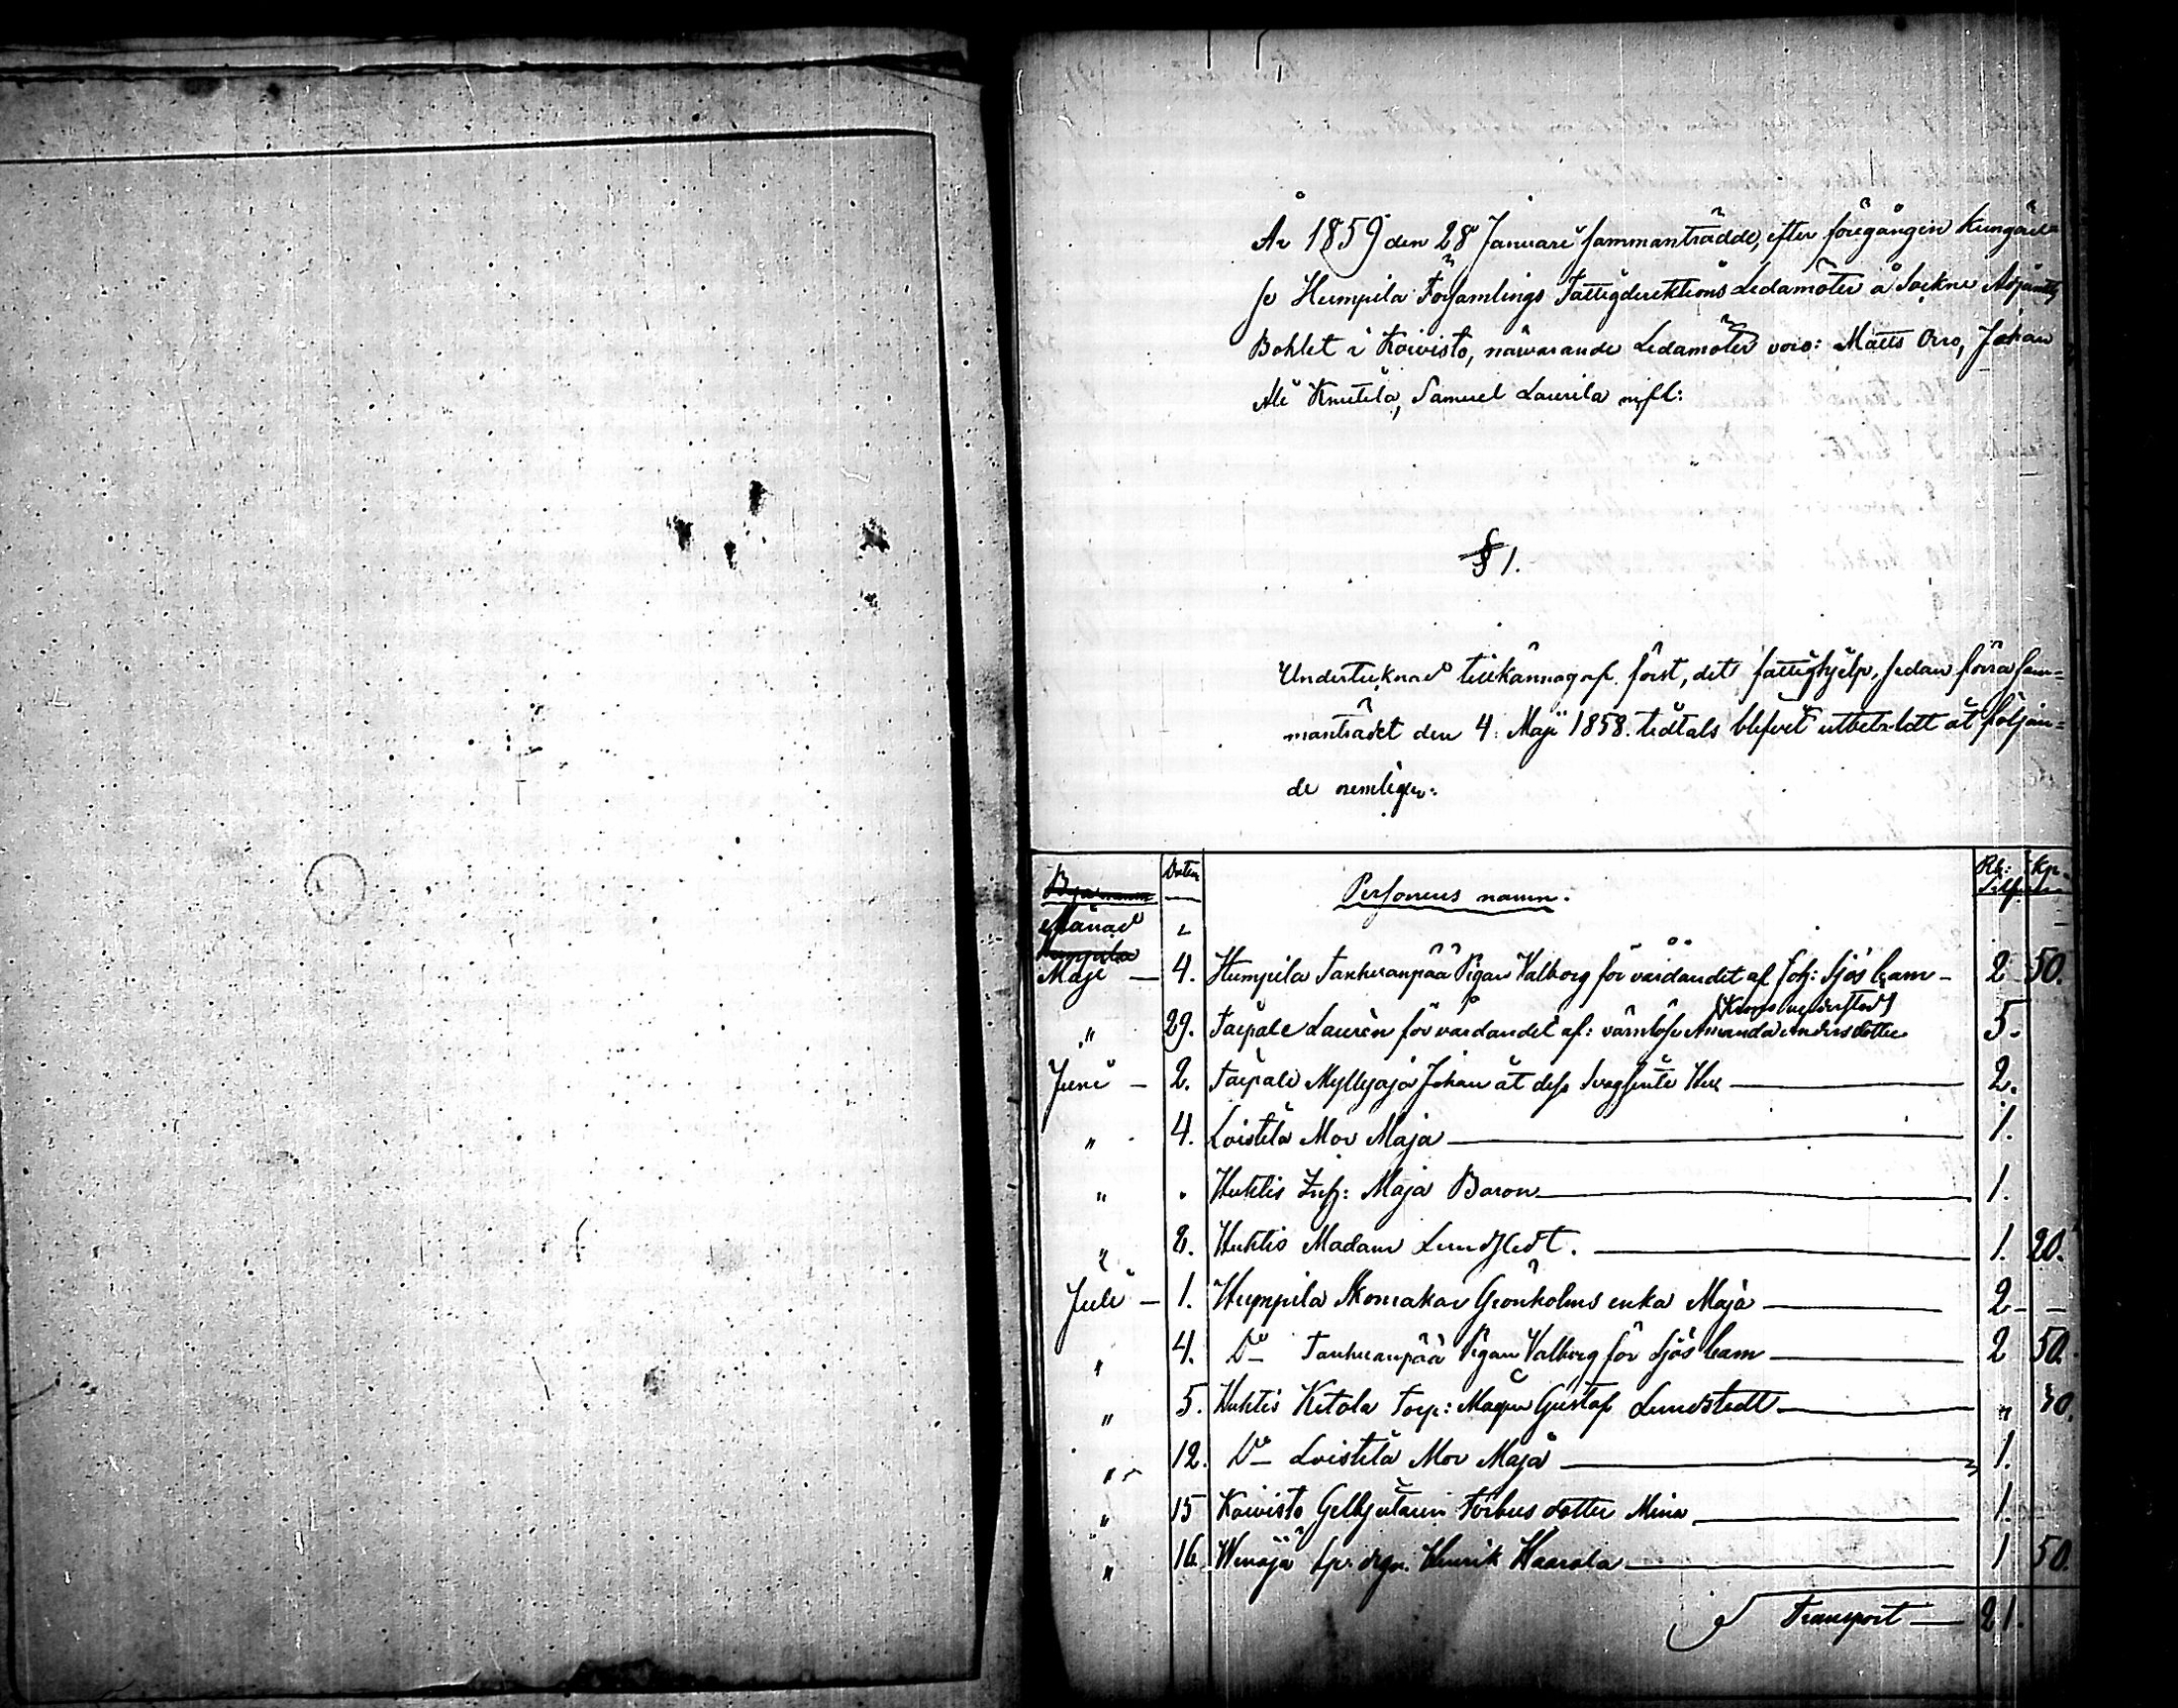 År 1859 den 28 Januari sammanträdde, efter föregången kungörel-
se Humpila Församlings Fattigdirektions Ledamöter å Sockne Adjunts
Bohlet i Koivisto, närvarande Ledamöter voro: Matts Orro, Johan
Ali Knutila, Samuel Laurila m,fl:
§ 1.
Undertecknad tillkännagaf först, det fattighjelp, sedan förra sam-
manträdet den 4. Maji 1858. tid tals blifvit utbetaldt åt följan-
de nemligen:
Byanamn Datum Personens namn. Rb: Silf. Kp.
Månad
Humpila
Maji — 4. Humpila Tanhuanpää Pigan Valborg för vårdandet af Joh: Sjös barn — 2 50.
" 29. Taipale Laurèn för vårdandet af: värnlösa Amanda Andersdotter 5.
Juni — 2. Taipale Myllyoja Johan åt dess Svagsinte 2.
" 4. Loistila Mor Maja 1.
" " Huhtis Inh: Maja Baron 1.
" 8. Huhtis Madam Lundstedt. 1. 20.
Juli — 1. Humpila Skomakar Grönholms enka Maja 2 —
" 4. Do Tanhuanpää Pigan Valborg för Sjös barn 2 50.
" 5. Huhtis Ketola Torp: Mågen Gustaf Lundstedt " 30.
" 12. Do Loistila Mor Maja 1.
" 15 Koivisto Gelbjutarin Forbus dotter Mina 1.
" 16. Wenäjä Henrik Haarala 1 50.
Transport — 21.